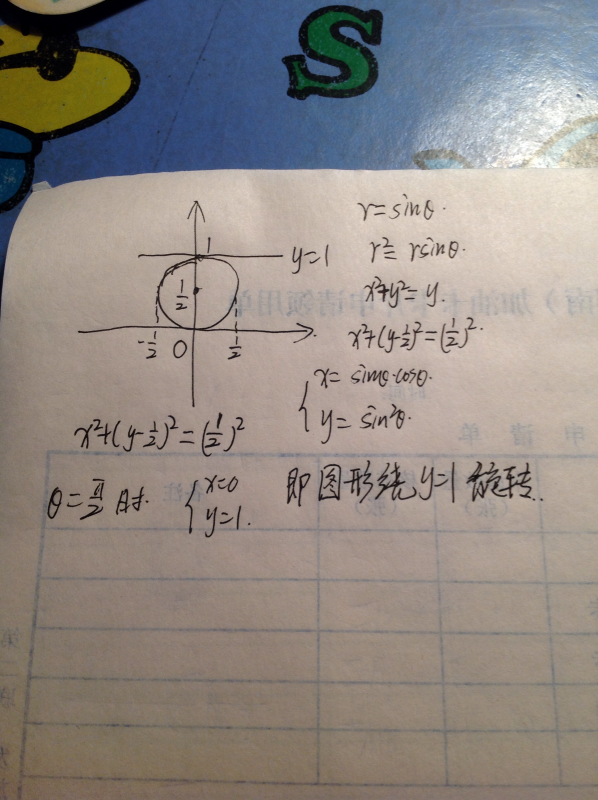 S
r=sinθ.
r²=rsinθ.
x²+y²=y.
x²+(y-1/2)²=(1/2)².
x=sinθ·cosθ.
y=sin²θ.
1
y=1
1/2
-1/2
O
1/2
x²+(y-1/2)²=(1/2)²
θ=π/2时.
x=0
y=1.
即图形绕y=1旋转.
南）加油卡
申请领用单
申 请 单